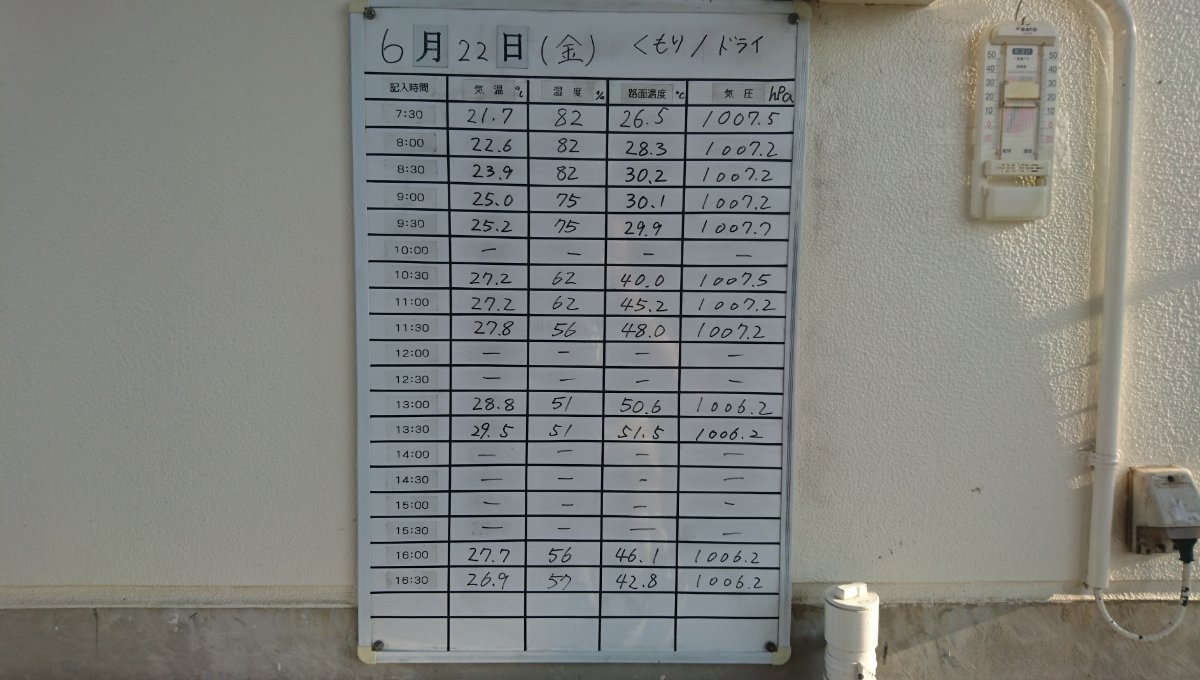 6月22日(金) くもり/ドライ
記入時間 気温 ℃ 湿度 % 路面温度 ℃ 気圧 hPa
7:30 21.7 82 26.5 1007.5
8:00 22.6 82 28.3 1007.2
8:30 23.9 82 30.2 1007.2
9:00 25.0 75 30.1 1007.2
9:30 25.2 75 29.9 1007.7
10:00 — — — —
10:30 27.2 62 40.0 1007.5
11:00 27.2 62 45.2 1007.2
11:30 27.8 56 48.0 1007.2
12:00 — — — —
12:30 — — — —
13:00 28.8 51 50.6 1006.2
13:30 29.5 51 51.5 1006.2
14:00 — — — —
14:30 — — — —
15:00 — — — —
15:30 — — — —
16:00 27.7 56 46.1 1006.2
16:30 26.9 57 42.8 1006.2
SATO
50 50
40 40
30 30
20 20
10 10
0 0